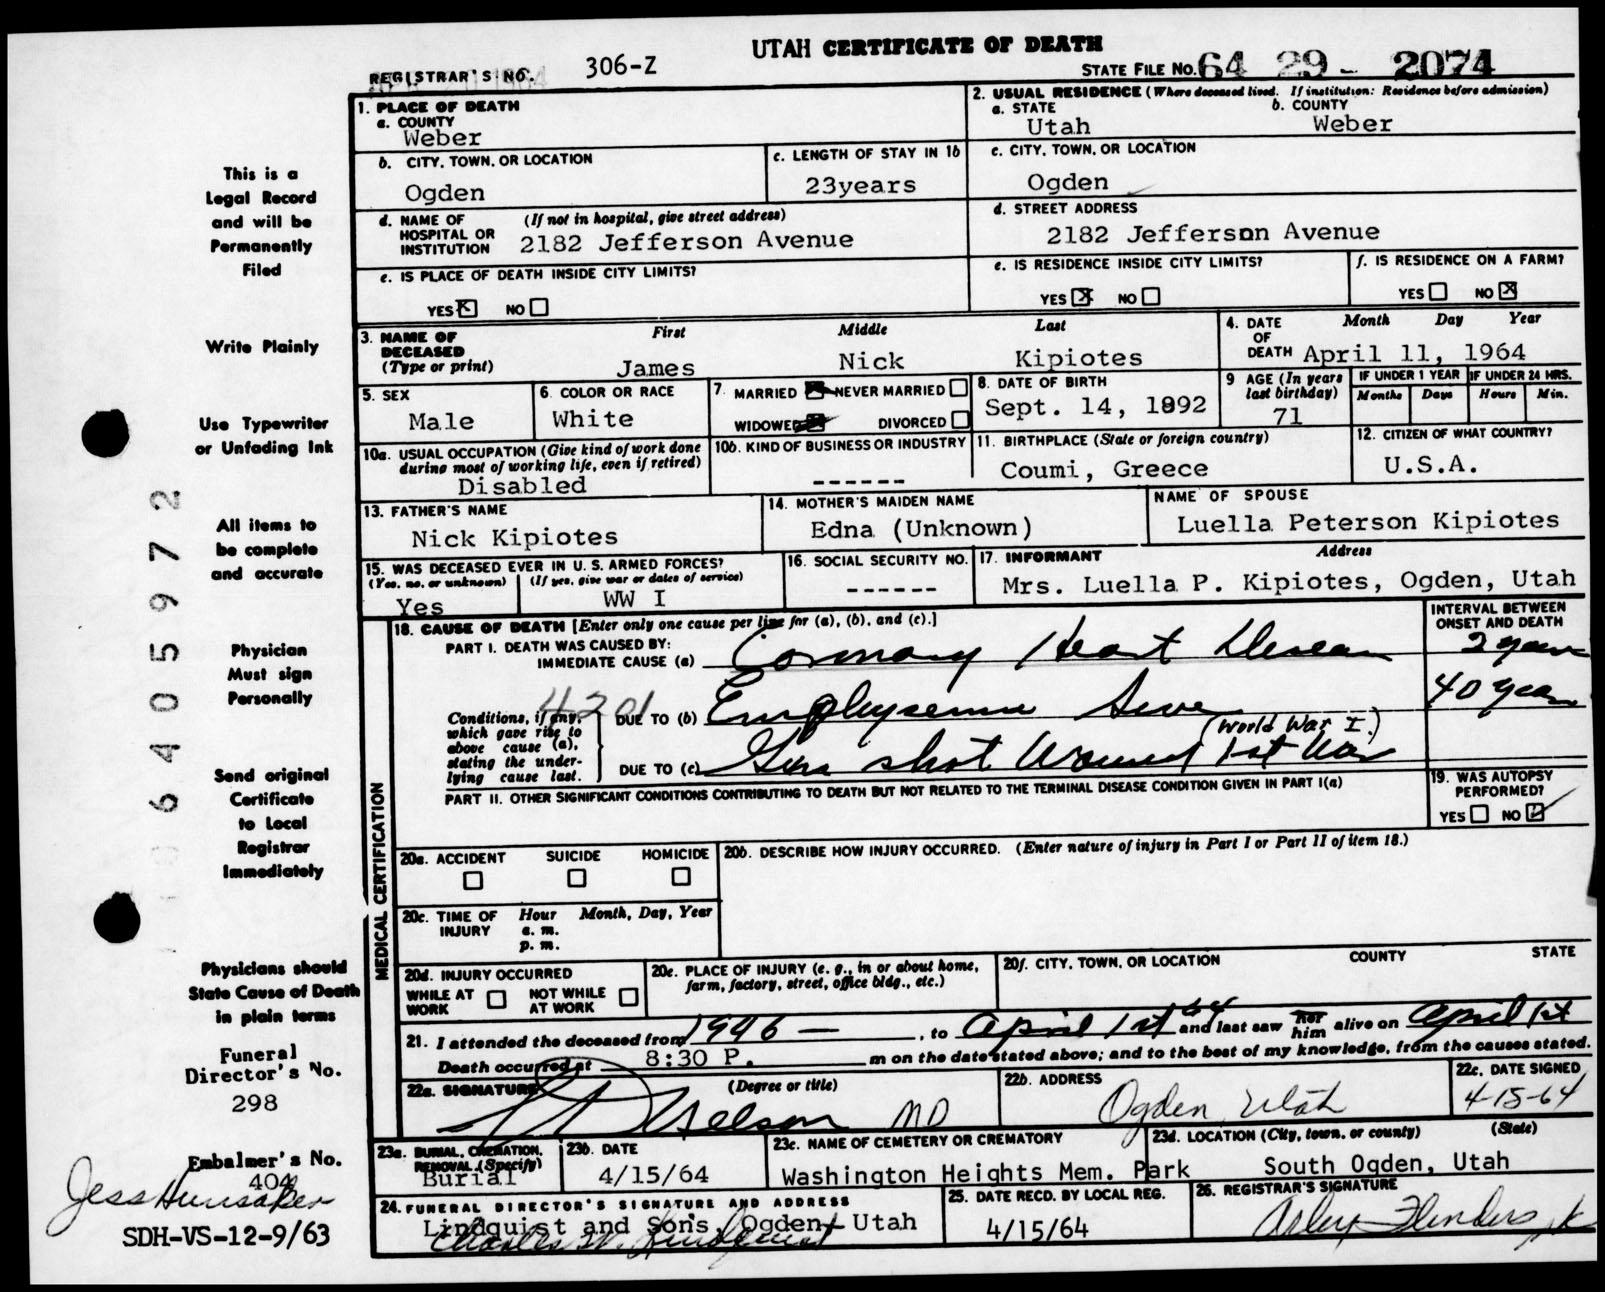 UTAH CERTIFICATE OF DEATH
REGISTRAR'S NO. 306-Z
STATE FILE NO. 64 29 - 2074
1. PLACE OF DEATH
a. COUNTY
Weber
2. USUAL RESIDENCE (Where deceased lived. If institution: Residence before admission)
a. STATE b. COUNTY
Utah Weber
b. CITY, TOWN, OR LOCATION
Ogden
c. LENGTH OF STAY IN 1b
23years
c. CITY, TOWN, OR LOCATION
Ogden
d. NAME OF (If not in hospital, give street address)
HOSPITAL OR
INSTITUTION 2182 Jefferson Avenue
d. STREET ADDRESS
2182 Jefferson Avenue
e. IS PLACE OF DEATH INSIDE CITY LIMITS?
YES X NO
e. IS RESIDENCE INSIDE CITY LIMITS?
YES X NO
f. IS RESIDENCE ON A FARM?
YES NO X
3. NAME OF
DECEASED
(Type or print)
First Middle Last
James Nick Kipiotes
4. DATE Month Day Year
OF
DEATH April 11, 1964
5. SEX
Male
6. COLOR OR RACE
White
7. MARRIED NEVER MARRIED
WIDOWED DIVORCED
8. DATE OF BIRTH
Sept. 14, 1892
9 AGE (In years
last birthday)
71
IF UNDER 1 YEAR IF UNDER 24 HRS.
Months Days Hours Min.
10a. USUAL OCCUPATION (Give kind of work done
during most of working life, even if retired)
Disabled
10b. KIND OF BUSINESS OR INDUSTRY
------
11. BIRTHPLACE (State or foreign country)
Coumi, Greece
12. CITIZEN OF WHAT COUNTRY?
U.S.A.
13. FATHER'S NAME
Nick Kipiotes
14. MOTHER'S MAIDEN NAME
Edna (Unknown)
NAME OF SPOUSE
Luella Peterson Kipiotes
15. WAS DECEASED EVER IN U. S. ARMED FORCES?
(Yes, no, or unknown) (If yes, give war or dates of service)
Yes WW I
16. SOCIAL SECURITY NO.
------
17. INFORMANT Address
Mrs. Luella P. Kipiotes, Ogden, Utah
MEDICAL CERTIFICATION
18. CAUSE OF DEATH [Enter only one cause per line for (a), (b), and (c).]
INTERVAL BETWEEN
ONSET AND DEATH
PART I. DEATH WAS CAUSED BY:
IMMEDIATE CAUSE (a) Coronary Heart Disease 2 years
4201
Conditions, if any,
which gave rise to
above cause (a),
stating the under-
lying cause last.
DUE TO (b) Emphysema 40 year
(World War I.)
DUE TO (c) Gun shot Wound 1st War
PART II. OTHER SIGNIFICANT CONDITIONS CONTRIBUTING TO DEATH BUT NOT RELATED TO THE TERMINAL DISEASE CONDITION GIVEN IN PART I(a)
19. WAS AUTOPSY
PERFORMED?
YES NO
20a. ACCIDENT SUICIDE HOMICIDE
20b. DESCRIBE HOW INJURY OCCURRED. (Enter nature of injury in Part I or Part II of item 18.)
20c. TIME OF Hour Month, Day, Year
INJURY a. m.
p. m.
20d. INJURY OCCURRED
WHILE AT WORK NOT WHILE AT WORK
20e. PLACE OF INJURY (e. g., in or about home,
farm, factory, street, office bldg., etc.)
20f. CITY, TOWN, OR LOCATION COUNTY STATE
21. I attended the deceased from 1946 — , to April 1st 64 and last saw her him alive on April 1st
Death occurred at 8:30 P. m on the date stated above; and to the best of my knowledge, from the causes stated.
22a. SIGNATURE (Degree or title)
Nelson MD
22b. ADDRESS
Ogden, Utah
22c. DATE SIGNED
4-15-64
23a. BURIAL, CREMATION,
REMOVAL (Specify)
Burial
23b. DATE
4/15/64
23c. NAME OF CEMETERY OR CREMATORY
Washington Heights Mem. Park
23d. LOCATION (City, town, or county) (State)
South Ogden, Utah
24. FUNERAL DIRECTOR'S SIGNATURE AND ADDRESS
Lindquist and Sons, Ogden, Utah
Charles W. Lindquist
25. DATE RECD. BY LOCAL REG.
4/15/64
26. REGISTRAR'S SIGNATURE
Flinders
This is a
Legal Record
and will be
Permanently
Filed
Write Plainly
Use Typewriter
or Unfading Ink
All items to
be complete
and accurate
Physician
Must sign
Personally
Send original
Certificate
to Local
Registrar
Immediately
Physicians should
State Cause of Death
in plain terms
Funeral
Director's No.
298
Embalmer's No.
404
Jess Hunsaker
SDH-VS-12-9/63
06405972